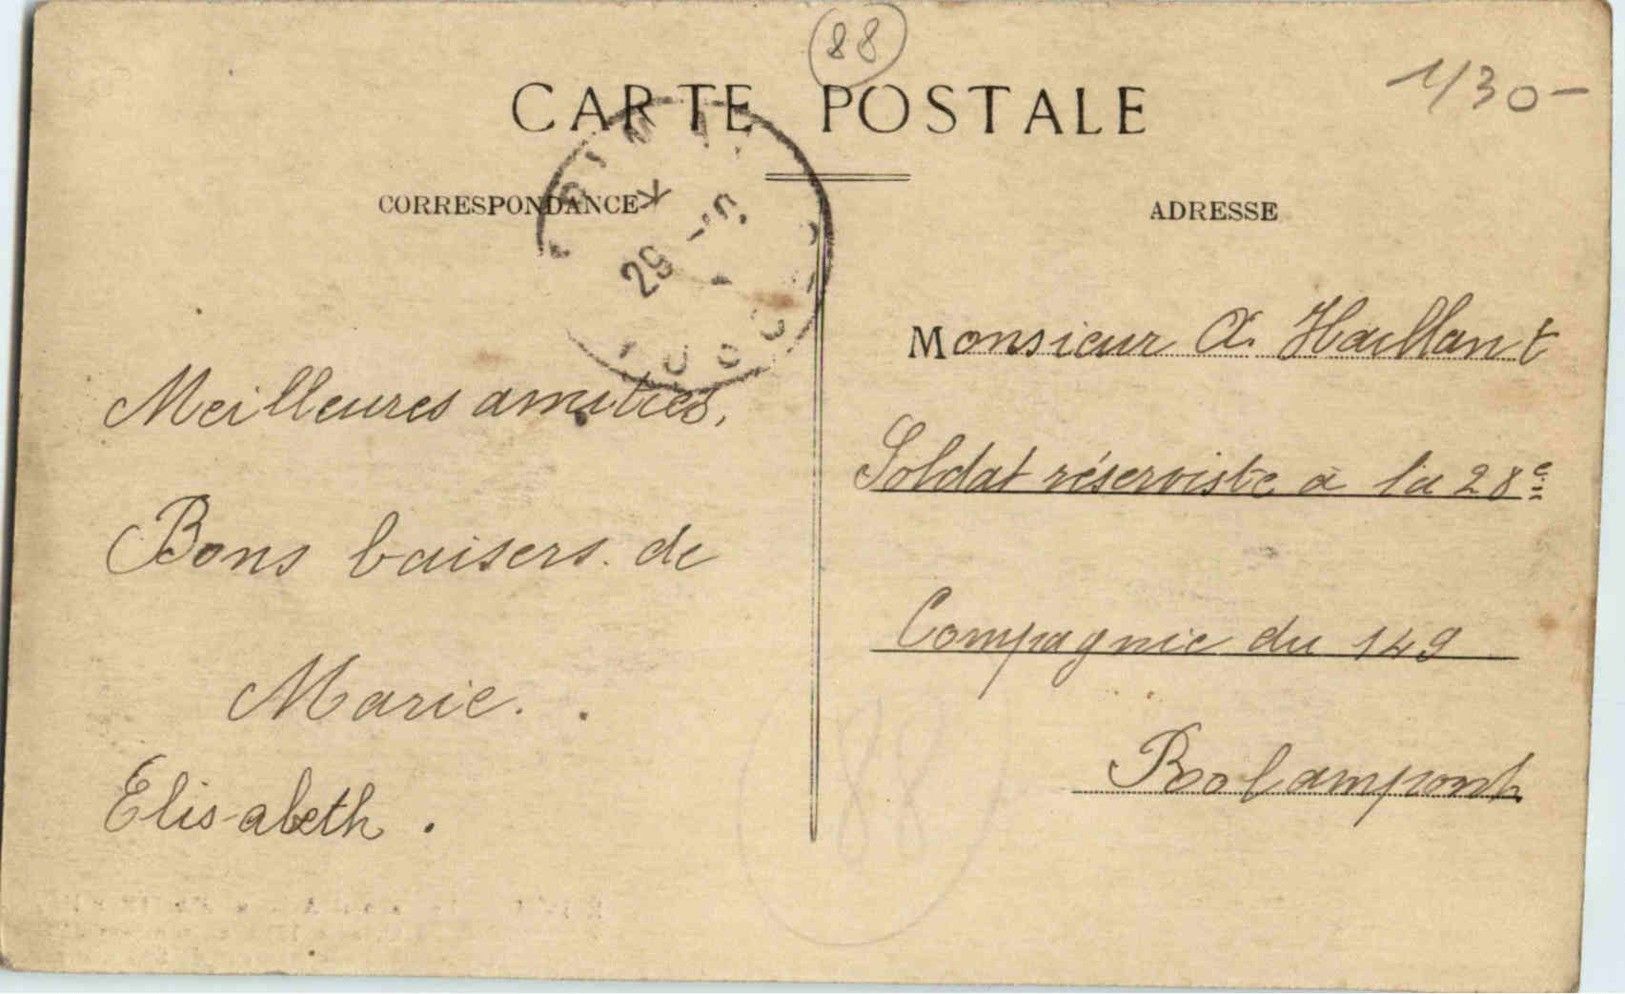 88
1/30-
CARTE POSTALE
CORRESPONDANCE
ADRESSE
29 -5
Meilleures amitiés,
Bons baisers. de
Marie.
Elisabeth.
Monsieur A. Haillant
Soldat réserviste à la 28e
Compagnie du 149
Rolampont
88